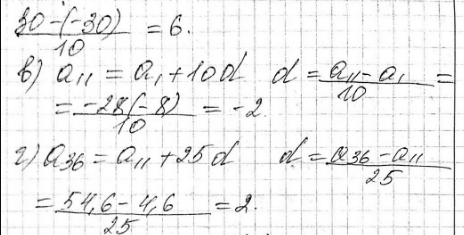 30-(-30)/10 = 6.
в) a₁₁ = a₁ + 10d d = (a₁₁ - a₁)/10 =
= -28(-8)/10 = -2.
г) a₃₆ = a₁₁ + 25d d = (a₃₆ - a₁₁)/25
= (54,6 - 4,6)/25 = 2.